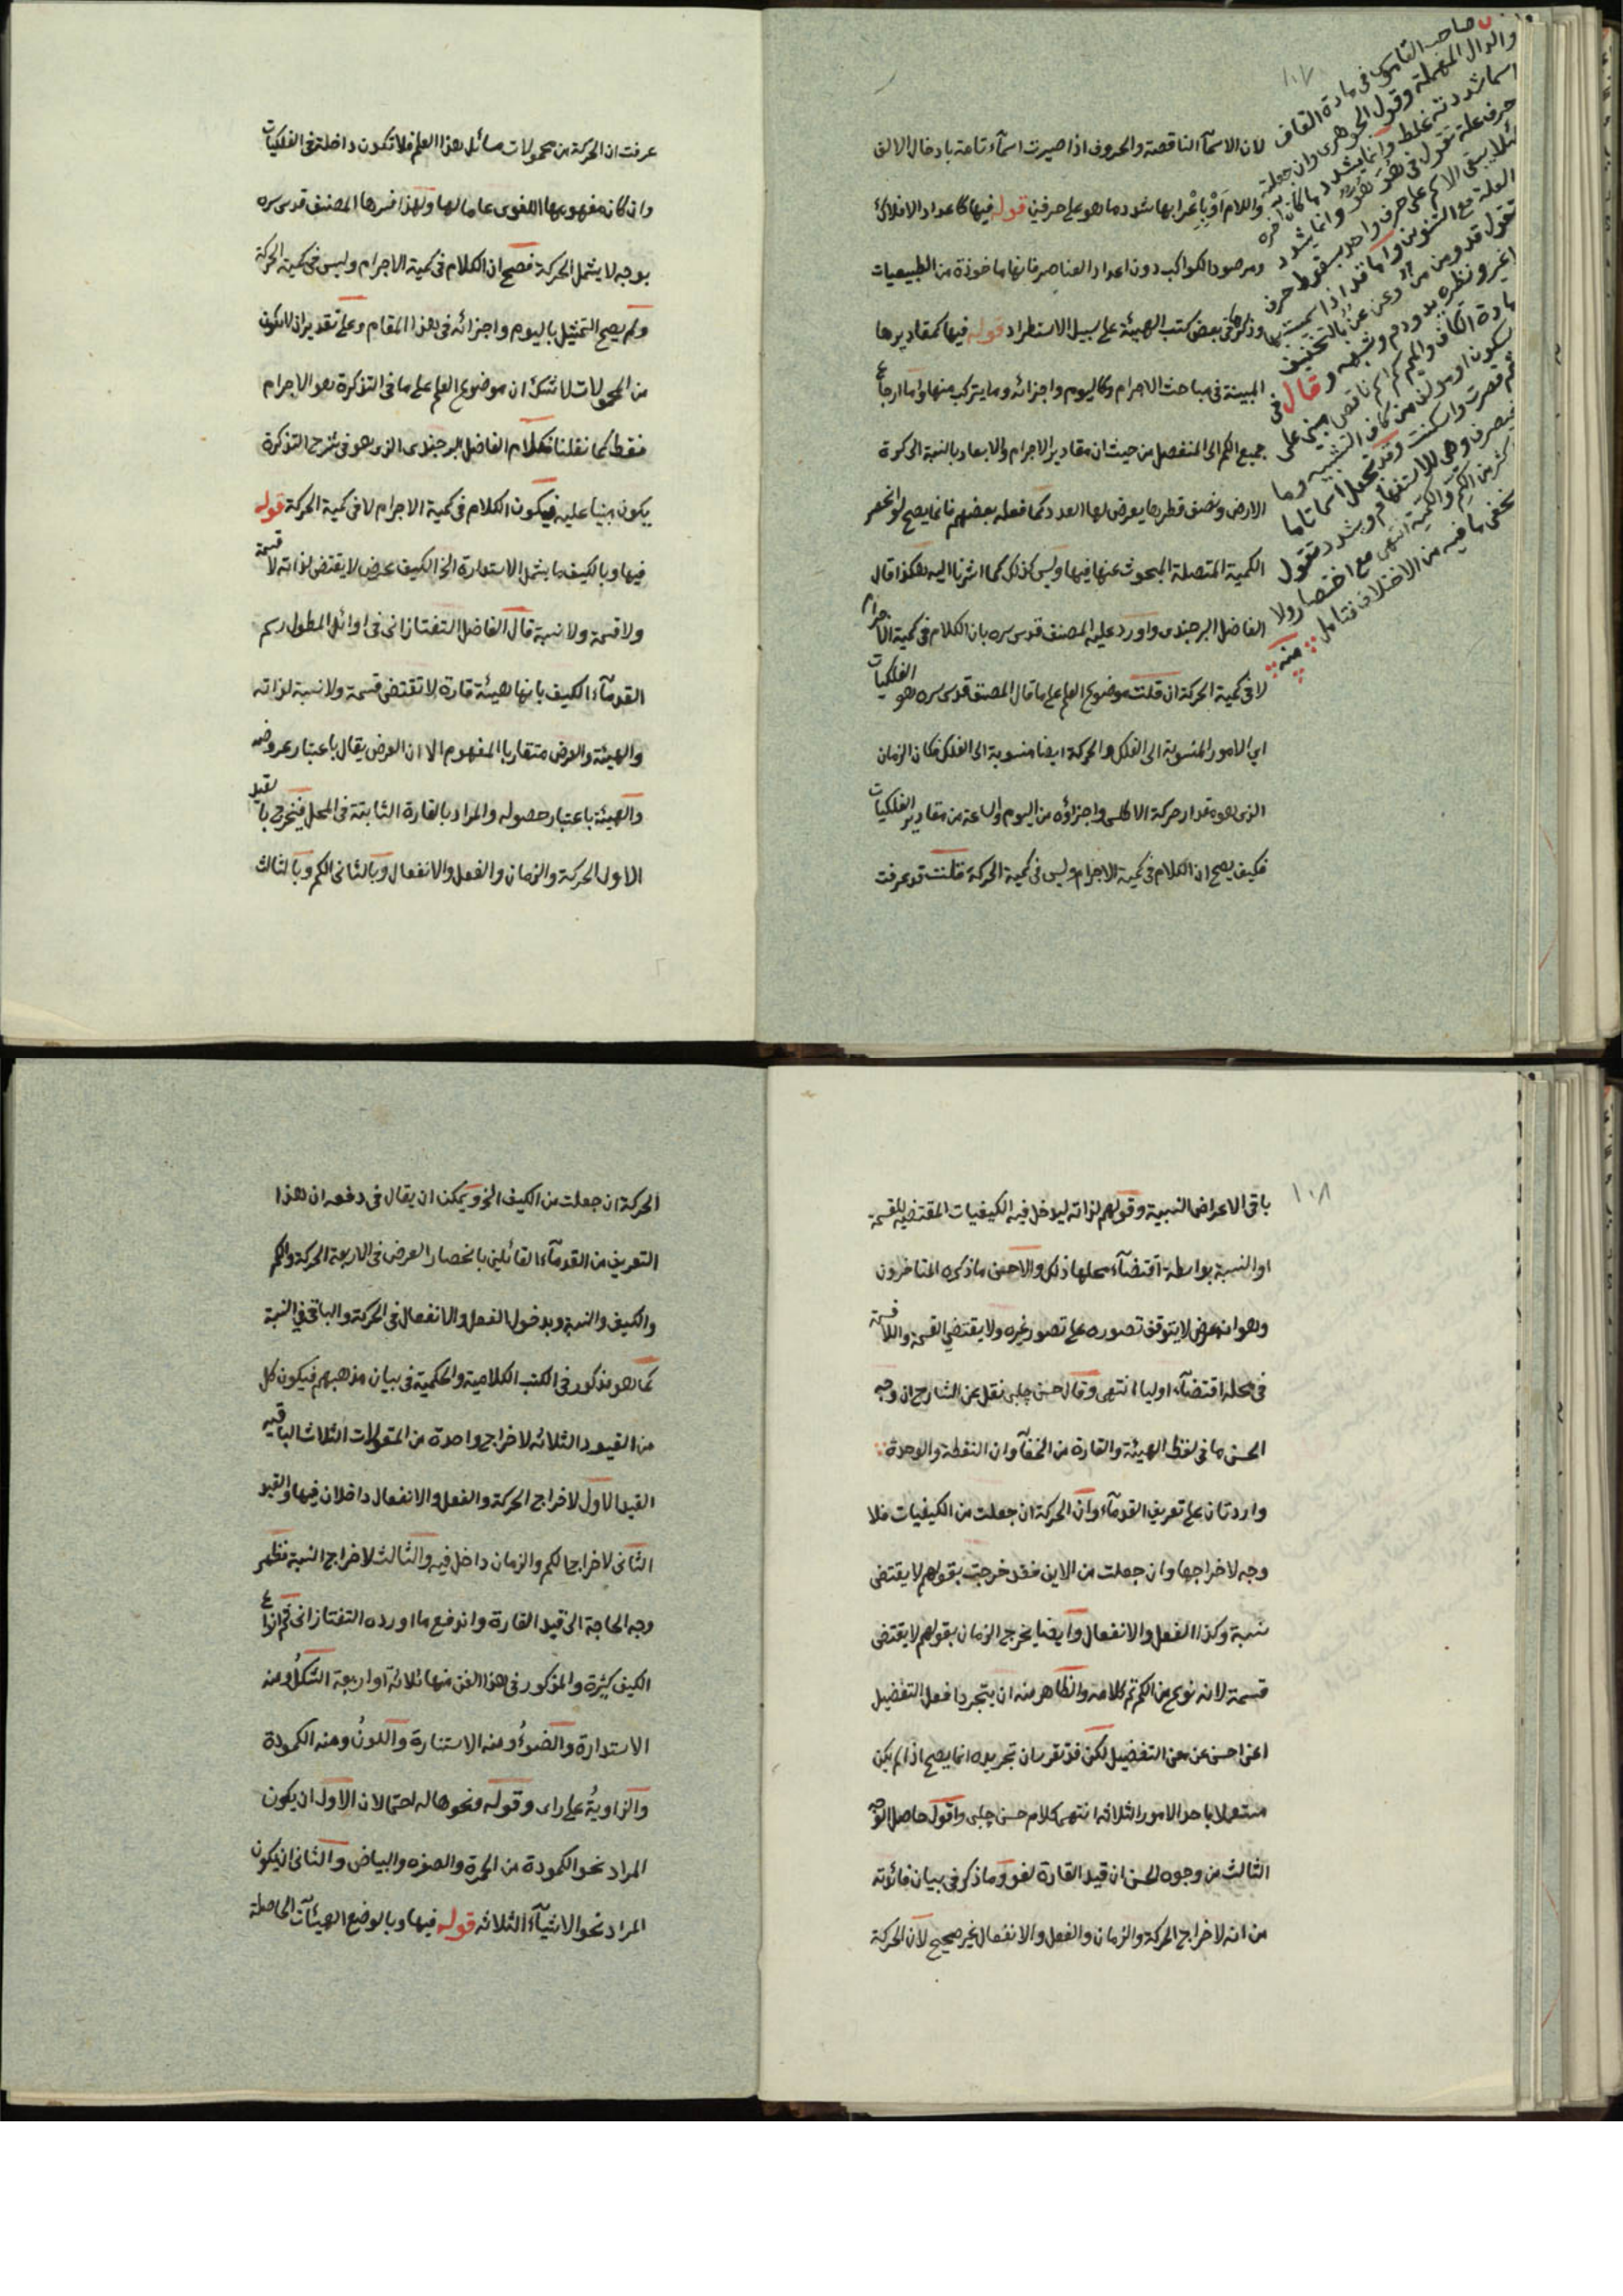 ١٠٧
لان الاسمآء الناقصة والحروف اذا صيرت اسمآء تامة بادخال الالف
واللام او باعرابها شدد ما هو على حرفين قوله فيها كاعداد الافلاك
ومرصود الكواكب دون اعداد العناصر فانها ماخوذة من الطبيعيات
وذكرها فى بعض كتب الهيئة على سبيل الاستطراد قوله فيها كمقاديرها
المبينة فى مباحث الاجرام وكاليوم واجزائه وما يتركب منها واما ارجاع
جميع الكم الى المنفصل من حيث ان مقادير الاجرام والابعاد بالنسبة الى كرة
الارض ونصف قطرها يعرض لها العدد كما فعله بعضهم فانما يصح لو انحصر
الكمية المتصلة المبحوث عنها فيها وليس كذلك كما اشرنا اليه هكذا قال
الفاضل البرجندى واورد عليه المصنف قدس سره بان الكلام فى كمية الاجرام
لا فى كمية الحركة ان قلت موضوع العلم على ما قال المصنف قدس سره هو الفلكيات
اي الامور المنسوبة الى الفلك والحركة ايضا منسوبة الى الفلك فكان الزمان
الذى هو مقدار حركة الاطلس واجزاؤه من اليوم والساعة من مقادير الفلكيات
فكيف يصح ان الكلام فى كمية الاجرام وليس فى كمية الحركة قلنت قد عرفت
صاحب القاموس فى مادة القاف
والدال المهملة وقول الجوهرى وان جعلته
اسما شددته غلط وانما يشدد ما كان آخره
حرف علة تقول فى هو هوّ وانما يشدد
لئلا يبقى الاسم على حرف واحد بسقوط حرف
العلة مع التنوين واما قد اذا سميت بها
تقول قد ومن من وعن عن بالتخفيف
لا غير ونظيره يد ودم وشبهه وقال فى
مادة الكاف والميم كم اسم ناقص مبنى على
سكون او مولف من كاف التشبيه وما
ثم قصرت واسكنت وقد تجعل اسما تاما
فيصرف وهى للاستفهام ويشدد تقول
اكثر من الكم والكمية انتهى مع اختصار ولا
يخفى ما فيه من الاختلاف فتامل منه
عرفت ان الحركة من محمولات مسائل هذا العلم فلا تكون داخلة فى الفلكيات
وان كان مفهومها اللغوى عاما لها ولهذا فسرها المصنف قدس سره
بوجه لا يشمل الحركة فصح ان الكلام فى كمية الاجرام وليس فى كمية الحركة
ولم يصح التمثيل باليوم واجزائه فى هذا المقام وعلى تقدير ان لا تكون
من المحمولات لا شك ان موضوع العلم على ما فى التذكرة هو الاجرام
فقط كما نقلنا فكلام الفاضل البرجندى الذى هو فى شرح التذكرة
يكون مبنيا عليه فيكون الكلام فى كمية الاجرام لا فى كمية الحركة قوله
فيها وبالكيف ما يشمل الاستدارة الخ الكيف عرض لا يقتضى لذاته لا قسمة
ولا قسمة ولا نسبة قال الفاضل التفتازانى فى اوائل المطول رسم
القدمآء الكيف بانها هيئة قارة لا تقتضى قسمة ولا نسبة لذاته
والهيئة والعرض متقاربا المفهوم الا ان العرض يقال باعتبار عروضه
والهيئة باعتبار حصوله والمراد بالقارة الثابتة فى المحل فيخرج بالقيد
الاول الحركة والزمان والفعل والانفعال وبالثانى الكم وبالثالث
١٠٨
باقى الاعراض النسبية وقولهم لذاته ليدخل فيه الكيفيات المقتضيه للقسمة
او النسبة بواسطة اقتضآء محلها ذلك والاحسن ما ذكره المتاخرون
وهو انه عرض لا يتوقف تصوره على تصور غيره ولا يقتضي القسمة واللاقسمة
فى محله اقتضآء اوليا انتهى وقال حسن چلبى نقل عن الشارح ان وجه
الحسن ما فى لفظ الهيئة والقارة من الخفآء وان النقطة والوحدة
واردتان على تعريف القدمآء وان الحركة ان جعلت من الكيفيات فلا
وجه لاخراجها وان جعلت من الاين فقد خرجت بقولهم لا يقتضى
نسبة وكذا الفعل والانفعال وايضا يخرج الزمان بقولهم لا يقتضى
قسمة لانه نوع من الكم تم كلامه والظاهر منه ان يتجرد افعل التفضيل
اعنى احسن عن معنى التفضيل لكن قد تقرر ان تجريده انما يصح اذا لم يكن
مستعملا باحد الامور الثلاثه انتهى كلام حسن چلبى واقول حاصل الوجه
الثالث من وجوه الحسن ان قيد القارة لغو وما ذكر فى بيان فائدته
من انه لاخراج الحركة والزمان والفعل والانفعال غير صحيح لان الحركة
الحركة ان جعلت من الكيف الخ ويمكن ان يقال فى دفعه ان هذا
التعريف من القدمآء القائلين بانحصار العرض فى الاربعة الحركة والكم
والكيف والنسبة وبدخول الفعل والانفعال فى الحركة والباقى فى النسبة
كما هو مذكور فى الكتب الكلامية والحكمية فى بيان مذهبهم فيكون كل
من القيود الثلاثه لاخراج واحدة من المقولات الثلاث الباقيه
القيد الاول لاخراج الحركة والفعل والانفعال داخلان فيها والقيد
الثانى لاخراج الكم والزمان داخل فيه والثالث لاخراج النسبة فظهر
وجه الحاجة الى قيد القارة واندفع ما اورده التفتازانى ثم انواع
الكيف كثيرة والمذكور فى هذا الفن منها ثلاثة او اربعة الشكل ومنه
الاستدارة والضوء ومنه الاستنارة واللون ومنه الكمودة
والزاوية على راى وقوله ونحوها له احتمالان الاول ان يكون
المراد نحو الكمودة من الحمرة والصفره والبياض والثانى ان يكون
المراد نحو الاشيآء الثلاثه قوله فيها وبالوضع الهيئات الحاصلة